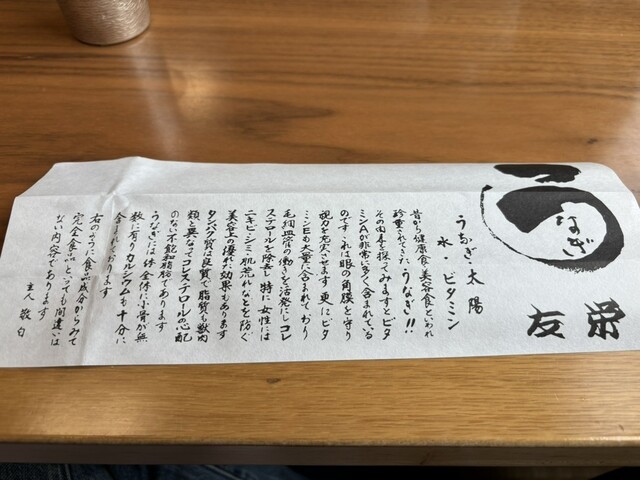 うなぎ
栄友
うなぎと太陽
水・ビタミン
昔から健康食、美容食といわれ
珍重されてきたうなぎ!!
その内容を探ってみますとビタ
ミンAが非常に多く含まれている
のです。これは眼の角膜を守り
視力を充実させます 更にビタ
ミンEも大量に含まれており
毛細血管の働きを活発にしコレ
ステロールを除去し特に女性には
ニキビ・シミ・肌荒れなどを防ぐ
美容上の優れた効果もあります
タンパク質は良質で脂質も獣肉
類と異なってコレステロールの心配
のない不飽和脂肪であります
うなぎには体全体に小骨が無
数に有りカルシウムも十分に
含まれております
右のように食品成分からみて
完全食品といっても間違いは
ない内容であります
主人 敬白